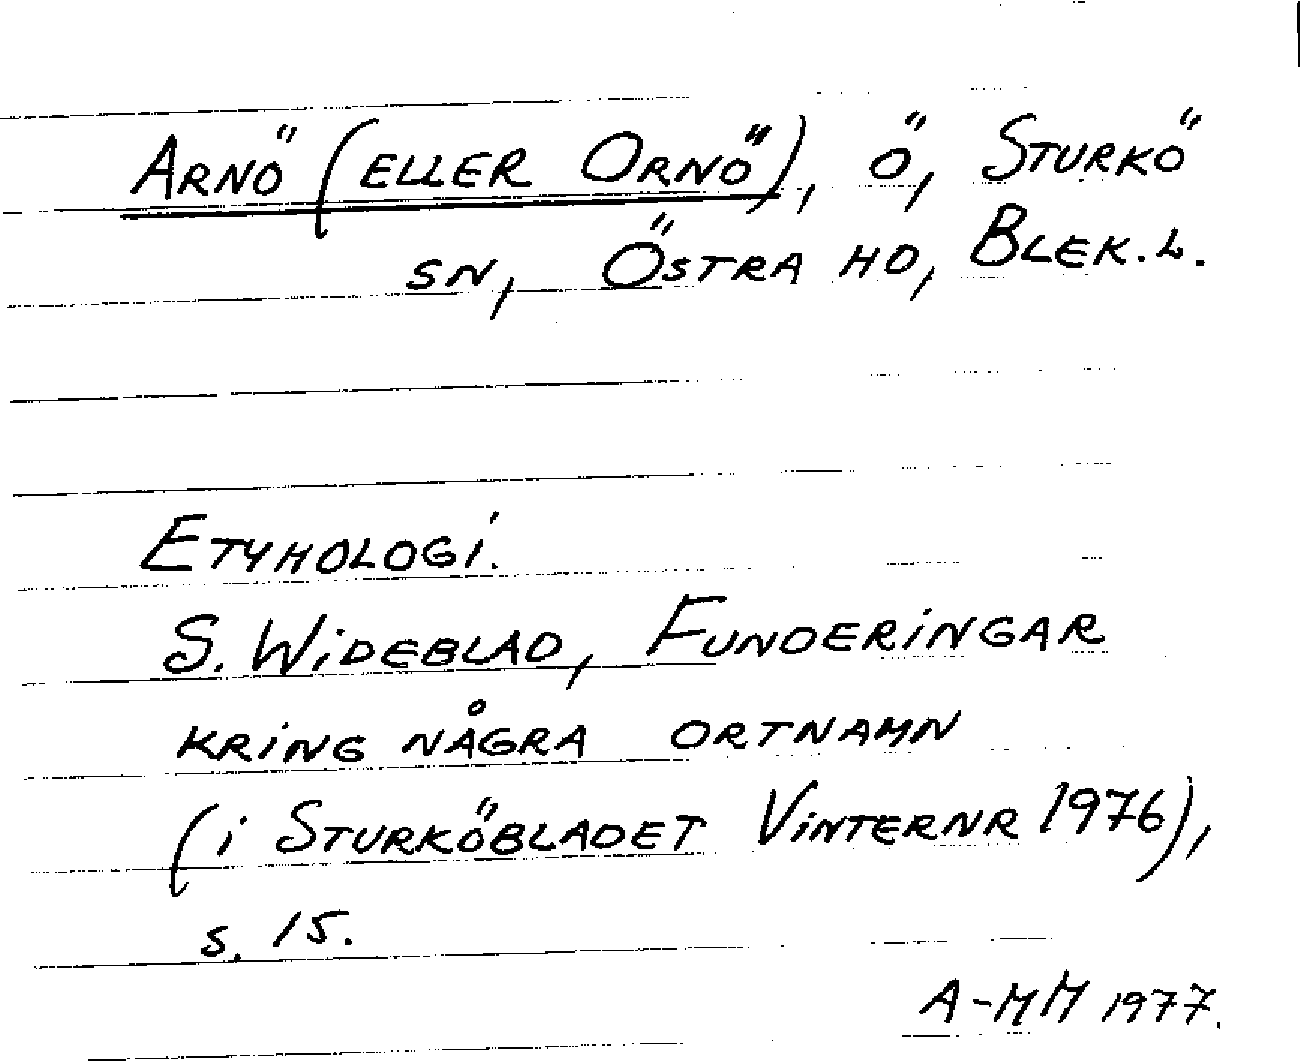 ARNÖ (ELLER ORNÖ), Ö, STURKÖ
SN, ÖSTRA HD, BLEK. L.
ETYMOLOGI.
S. WIDEBLAD, FUNDERINGAR
KRING NÅGRA ORTNAMN
(i STURKÖBLADET VINTERNR 1976),
s. 15.
A-MM 1977.